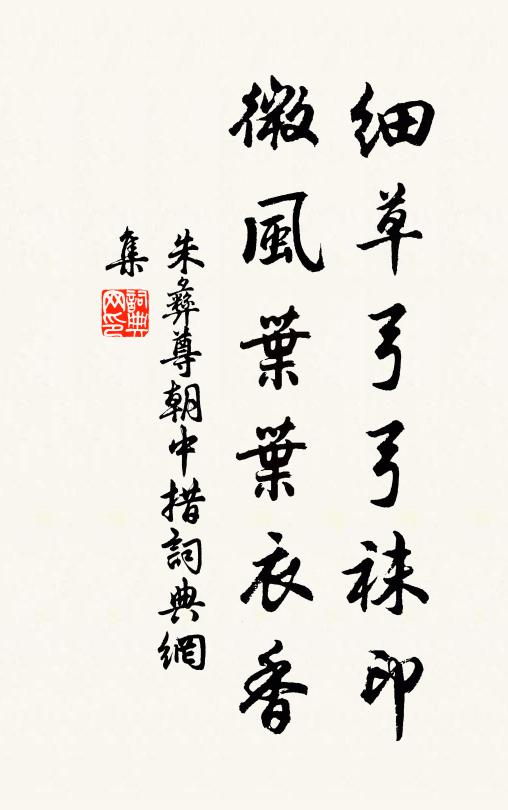 細草弓弓袜印
微風葉葉衣香
朱彝尊朝中措詞典網
集
詞典网印